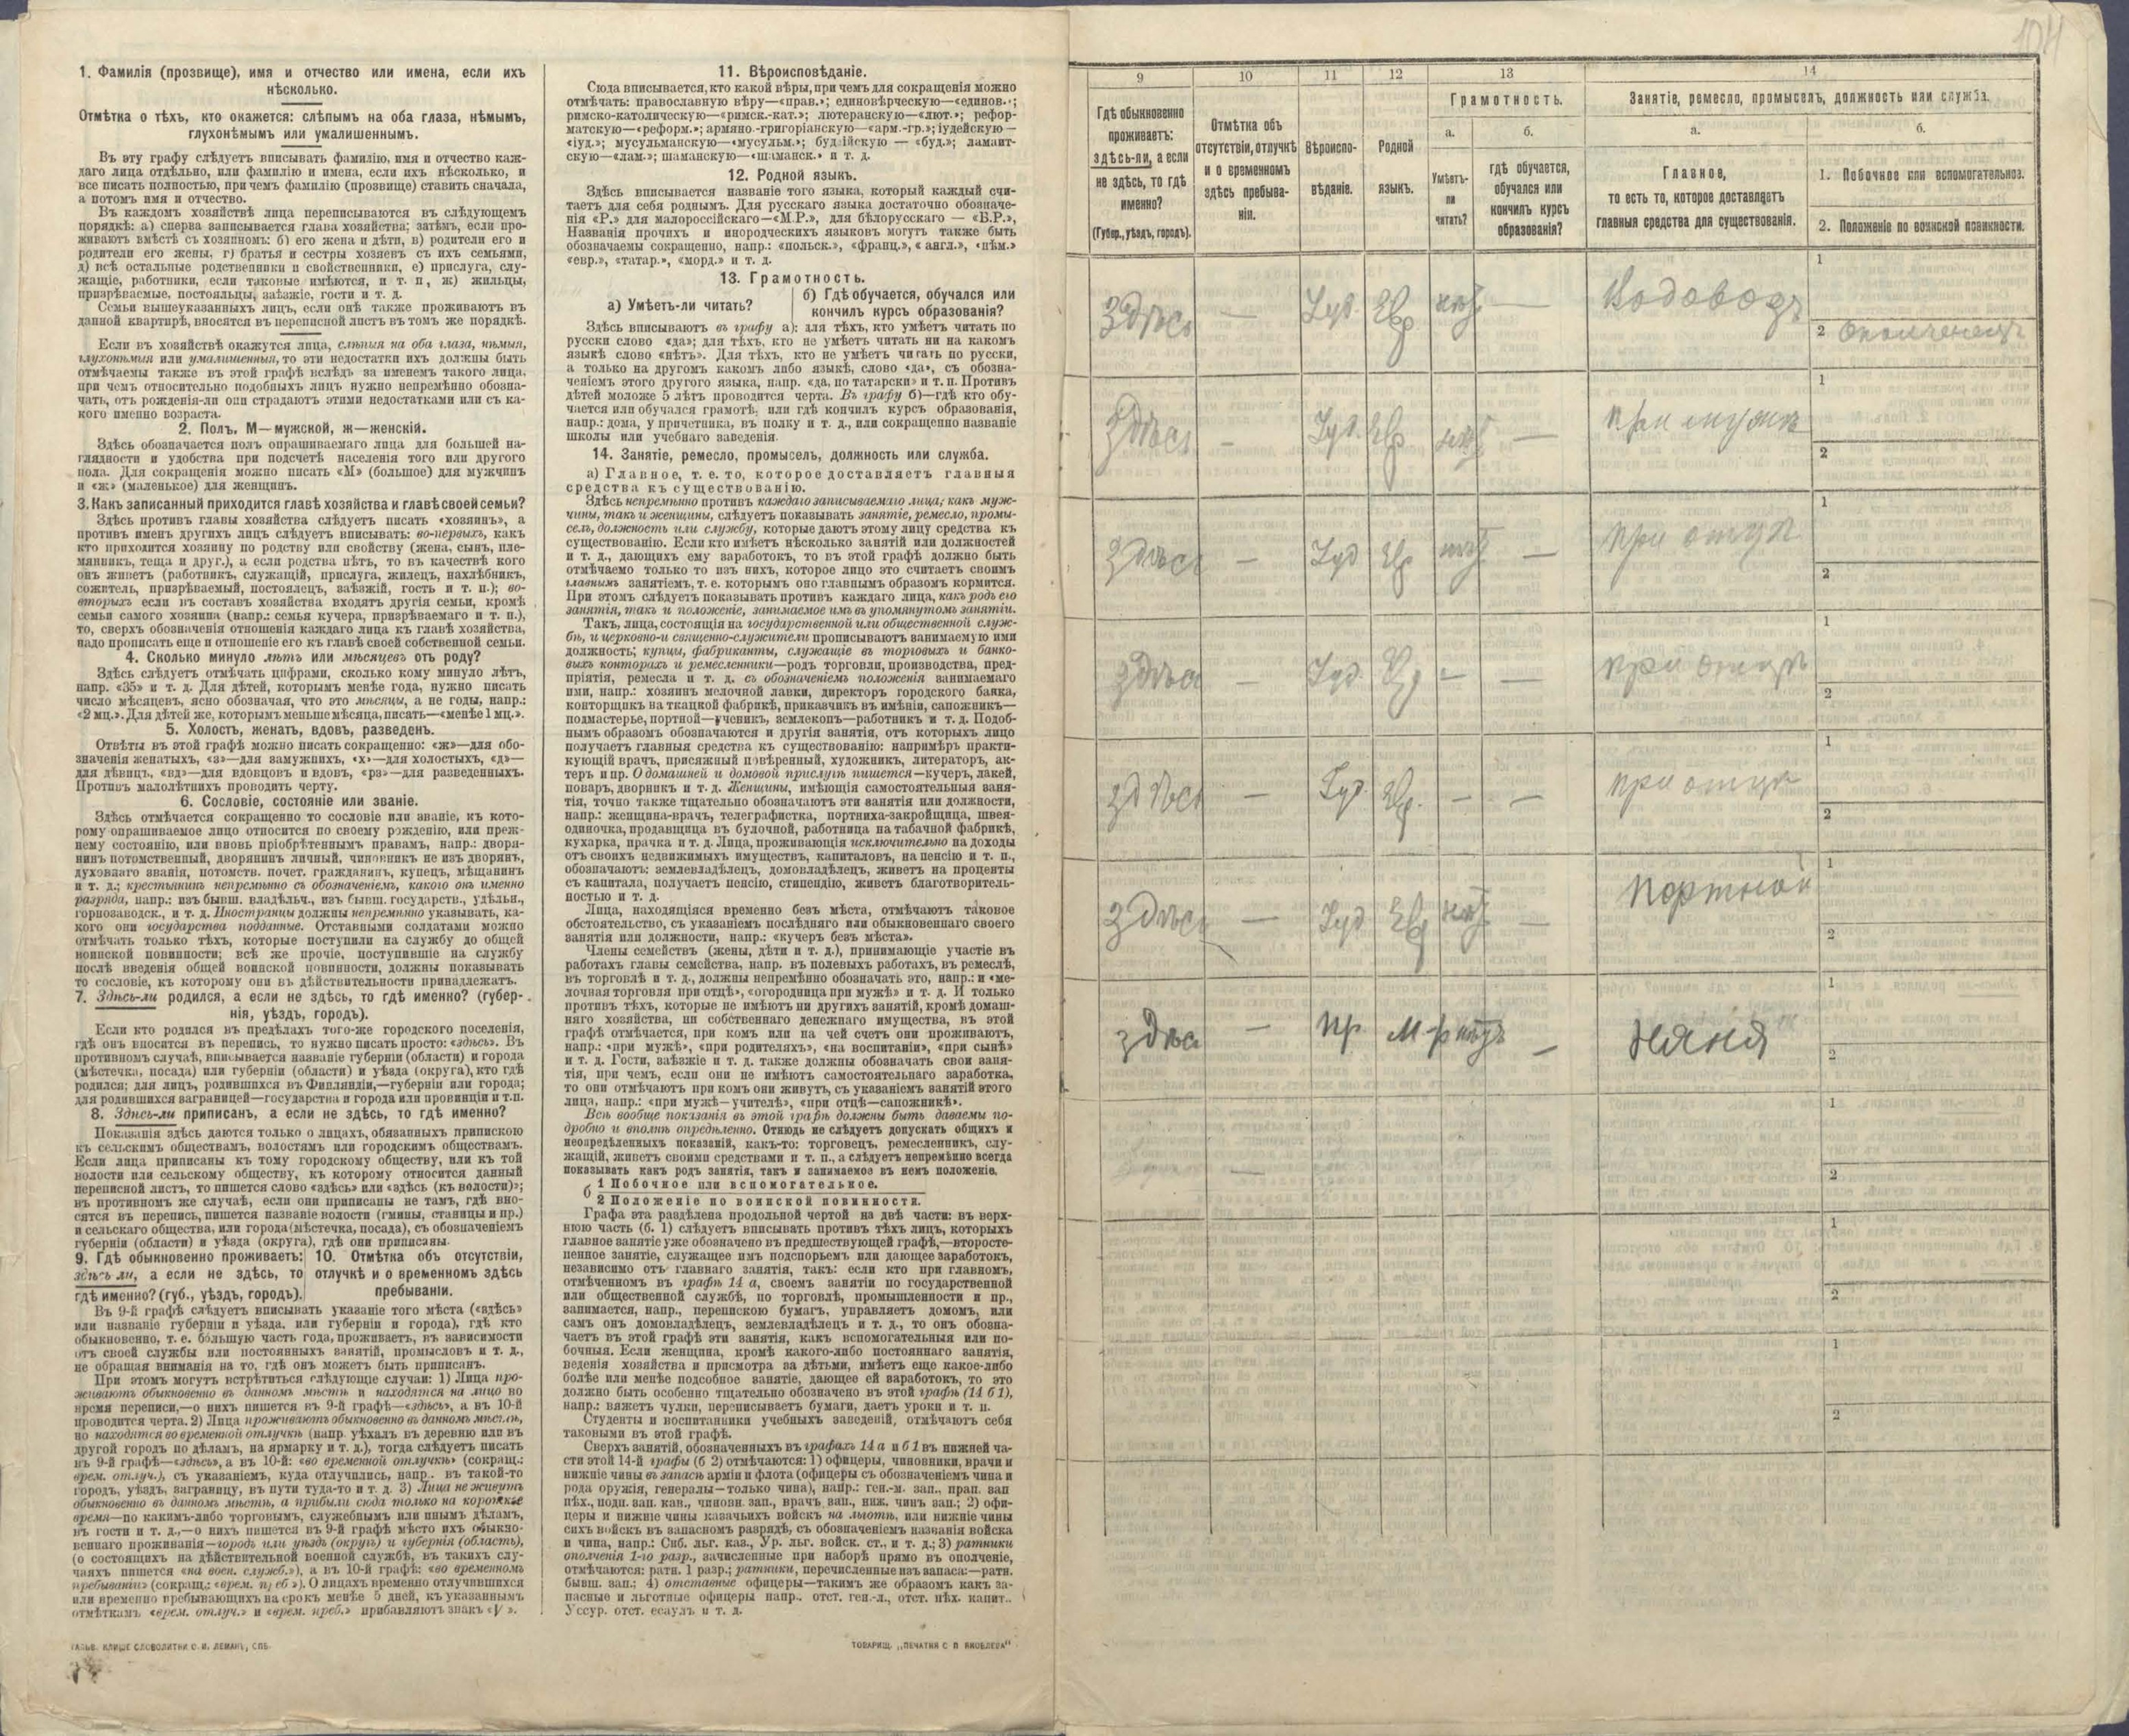 1. Фамилія (прозвище), имя и отчество или имена, если ихъ
нѣсколько.
Отмѣтка о тѣхъ, кто окажется: слѣпымъ на оба глаза, нѣмымъ,
глухонѣмымъ или умалишеннымъ.
Въ эту графу слѣдуетъ вписывать фамилію, имя и отчество каж-
даго лица отдѣльно, или фамилію и имена, если ихъ нѣсколько, и
все писать полностью, при чемъ фамилію (прозвище) ставить сначала,
а потомъ имя и отчество.
Въ каждомъ хозяйствѣ лица переписываются въ слѣдующемъ
порядкѣ: а) сперва записывается глава хозяйства; затѣмъ, если про-
живаютъ вмѣстѣ съ хозяиномъ: б) его жена и дѣти, в) родители его и
родители его жены, г) братья и сестры хозяевъ съ ихъ семьями,
д) всѣ остальные родственники и свойственники, е) прислуга, слу-
жащіе, работники, если таковые имѣются, и т. п, ж) жильцы,
призрѣваемые, постояльцы, заѣзжіе, гости и т. д.
Семьи вышеуказанныхъ лицъ, если онѣ также проживаютъ въ
данной квартирѣ, вносятся въ переписной листъ въ томъ же порядкѣ.
Если въ хозяйствѣ окажутся лица, слѣпыя на оба глаза, нѣмыя,
глухонѣмыя или умалишенныя, то эти недостатки ихъ должны быть
отмѣчаемы также въ этой графѣ вслѣдъ за именемъ такого лица,
при чемъ относительно подобныхъ лицъ нужно непремѣнно обозна-
чать, отъ рожденія-ли они страдаютъ этими недостатками или съ ка-
кого именно возраста.
2. Полъ, М—мужской, ж—женскій.
Здѣсь обозначается полъ опрашиваемаго лица для большей на-
глядности и удобства при подсчетѣ населенія того или другого
пола. Для сокращенія можно писать «М» (большое) для мужчинъ
и «ж» (маленькое) для женщинъ.
3. Какъ записанный приходится главѣ хозяйства и главѣ своей семьи?
Здѣсь противъ главы хозяйства слѣдуетъ писать «хозяинъ», а
противъ именъ другихъ лицъ слѣдуетъ вписывать: во-первыхъ, какъ
кто приходится хозяину по родству или свойству (жена, сынъ, пле-
мянникъ, теща и друг.), а если родства нѣтъ, то въ качествѣ кого
онъ живетъ (работникъ, служащій, прислуга, жилецъ, нахлѣбникъ,
сожитель, призрѣваемый, постоялецъ, заѣзжій, гость и т. п.); во-
вторыхъ если въ составъ хозяйства входятъ другія семьи, кромѣ
семьи самого хозяина (напр.: семья кучера, призрѣваемаго и т. п.),
то, сверхъ обозначенія отношенія каждаго лица къ главѣ хозяйства,
надо прописать еще и отношеніе его къ главѣ своей собственной семьи.
4. Сколько минуло лѣтъ или мѣсяцевъ отъ роду?
Здѣсь слѣдуетъ отмѣчать цифрами, сколько кому минуло лѣтъ,
напр. «35» и т. д. Для дѣтей, которымъ менѣе года, нужно писать
число мѣсяцевъ, ясно обозначая, что это мѣсяцы, а не годы, напр.:
«2 мц.». Для дѣтей же, которымъ меньше мѣсяца, писать—«менѣе 1 мц.».
5. Холостъ, женатъ, вдовъ, разведенъ.
Отвѣты въ этой графѣ можно писать сокращенно: «ж»—для обо-
значенія женатыхъ, «з»—для замужнихъ, «х»—для холостыхъ, «д»—
для дѣвицъ, «вд»—для вдовцовъ и вдовъ, «рз»—для разведенныхъ.
Противъ малолѣтнихъ проводить черту.
6. Сословіе, состояніе или званіе.
Здѣсь отмѣчается сокращенно то сословіе или званіе, къ кото-
рому опрашиваемое лицо относится по своему рожденію, или преж-
нему состоянію, или вновь пріобрѣтеннымъ правамъ, напр.: дворя-
нинъ потомственный, дворянинъ личный, чиновникъ не изъ дворянъ,
духовнаго званія, потомств. почет. гражданинъ, купецъ, мѣщанинъ
и т. д.; крестьянинъ непремѣнно съ обозначеніемъ, какого онъ именно
разряда, напр.: изъ бывш. владѣльч., изъ бывш. государств., удѣльн.,
горнозаводск., и т. д. Иностранцы должны непремѣнно указывать, ка-
кого они государства подданные. Отставными солдатами можно
отмѣчать только тѣхъ, которые поступили на службу до общей
воинской повинности; всѣ же прочіе, поступившіе на службу
послѣ введенія общей воинской повинности, должны показывать
то сословіе, къ которому они въ дѣйствительности принадлежатъ.
7. Здѣсь-ли родился, а если не здѣсь, то гдѣ именно? (губер-
нія, уѣздъ, городъ).
Если кто родился въ предѣлахъ того-же городского поселенія,
гдѣ онъ вносится въ перепись, то нужно писать просто: «здѣсь». Въ
противномъ случаѣ, вписывается названіе губерніи (области) и города
(мѣстечка, посада) или губерніи (области) и уѣзда (округа), кто гдѣ
родился; для лицъ, родившихся въ Финляндіи,—губерніи или города;
для родившихся заграницей—государства и города или провинціи и т.п.
8. Здѣсь-ли приписанъ, а если не здѣсь, то гдѣ именно?
Показанія здѣсь даются только о лицахъ, обязанныхъ припискою
къ сельскимъ обществамъ, волостямъ или городскимъ обществамъ.
Если лица приписаны къ тому городскому обществу, или къ той
волости или сельскому обществу, къ которому относится данный
переписной листъ, то пишется слово «здѣсь» или «здѣсь (къ волости)»;
въ противномъ же случаѣ, если они приписаны не тамъ, гдѣ вно-
сятся въ перепись, пишется названіе волости (гмины, станицы и пр.)
и сельскаго общества, или города (мѣстечка, посада), съ обозначеніемъ
губерніи (области) и уѣзда (округа), гдѣ они приписаны.
9. Гдѣ обыкновенно проживаетъ:
здѣсь-ли, а если не здѣсь, то
гдѣ именно? (губ., уѣздъ, городъ).
10. Отмѣтка объ отсутствіи,
отлучкѣ и о временномъ здѣсь
пребываніи.
Въ 9-й графѣ слѣдуетъ вписывать указаніе того мѣста («здѣсь»
или названіе губерніи и уѣзда, или губерніи и города), гдѣ кто
обыкновенно, т. е. бо́льшую часть года, проживаетъ, въ зависимости
отъ своей службы или постоянныхъ занятій, промысловъ и т. д.,
не обращая вниманія на то, гдѣ онъ можетъ быть приписанъ.
При этомъ могутъ встрѣтиться слѣдующіе случаи: 1) Лица про-
живаютъ обыкновенно въ данномъ мѣстѣ и находятся на лицо во
время переписи,—о нихъ пишется въ 9-й графѣ—«здѣсь», а въ 10-й
проводится черта. 2) Лица проживаютъ обыкновенно въ данномъ мѣстѣ,
но находятся во временной отлучкѣ (напр. уѣхалъ въ деревню или въ
другой городъ по дѣламъ, на ярмарку и т. д.), тогда слѣдуетъ писать
въ 9-й графѣ—«здѣсь», а въ 10-й: «во временной отлучкѣ» (сокращ.:
врем. отлуч.), съ указаніемъ, куда отлучились, напр.. въ такой-то
городъ, уѣздъ, заграницу, въ пути туда-то и т. д. 3) Лица не живутъ
обыкновенно въ данномъ мѣстѣ, а прибыли сюда только на короткое
время—по какимъ-либо торговымъ, служебнымъ или инымъ дѣламъ,
въ гости и т. д.,—о нихъ пишется въ 9-й графѣ мѣсто ихъ обыкно-
веннаго проживанія—городъ или уѣздъ (округъ) и губернія (область),
(о состоящихъ на дѣйствительной военной службѣ, въ такихъ слу-
чаяхъ пишется «на воен. служб.»), а въ 10-й графѣ: «во временномъ
пребываніи» (сокращ.: «врем. преб»). О лицахъ временно отлучившихся
или временно пребывающихъ на срокъ менѣе 5 дней, къ указаннымъ
отмѣткамъ «врем. отлуч.» и «врем. преб.» прибавляютъ знакъ «V».
ГАЛЬВ. КЛИШЕ СЛОВОЛИТНИ О. И. ЛЕМАНЪ, СПБ
11. Вѣроисповѣданіе.
Сюда вписывается, кто какой вѣры, при чемъ для сокращенія можно
отмѣчать: православную вѣру—«прав.»; единовѣрческую—«единов.»;
римско-католическую—«римск.-кат.»; лютеранскую—«лют.»; рефор-
матскую—«реформ.»; армяно-григоріанскую—«арм.-гр.»; іудейскую—
«іуд.»; мусульманскую—«мусульм.»; буддійскую — «буд.»; ламаит-
скую—«лам.»; шаманскую—«шаманск.» и т. д.
12. Родной языкъ.
Здѣсь вписывается названіе того языка, который каждый счи-
таетъ для себя роднымъ. Для русскаго языка достаточно обозначе-
нія «Р.» для малороссійскаго—«М.Р.», для бѣлорусскаго — «Б.Р.»,
Названія прочихъ и инородческихъ языковъ могутъ также быть
обозначаемы сокращенно, напр.: «польск.», «франц.», «англ.», «нѣм.»
«евр.», «татар.», «морд.» и т. д.
13. Грамотность.
а) Умѣетъ-ли читать?
б) Гдѣ обучается, обучался или
кончилъ курсъ образованія?
Здѣсь вписываютъ въ графу а): для тѣхъ, кто умѣетъ читать по
русски слово «да»; для тѣхъ, кто не умѣетъ читать ни на какомъ
языкѣ слово «нѣтъ». Для тѣхъ, кто не умѣетъ читать по русски,
а только на другомъ какомъ либо языкѣ, слово «да», съ обозна-
ченіемъ этого другого языка, напр. «да, по татарски» и т. п. Противъ
дѣтей моложе 5 лѣтъ проводится черта. Въ графу б)—гдѣ кто обу-
чается или обучался грамотѣ, или гдѣ кончилъ курсъ образованія,
напр.: дома, у причетника, въ полку и т. д., или сокращенно названіе
школы или учебнаго заведенія.
14. Занятіе, ремесло, промыселъ, должность или служба.
а) Главное, т. е. то, которое доставляетъ главныя
средства къ существованію.
Здѣсь непремѣнно противъ каждаго записываемаго лица, какъ муж-
чины, такъ и женщины, слѣдуетъ показывать занятіе, ремесло, промы-
селъ, должность или службу, которые даютъ этому лицу средства къ
существованію. Если кто имѣетъ нѣсколько занятій или должностей
и т. д., дающихъ ему заработокъ, то въ этой графѣ должно быть
отмѣчаемо только то изъ нихъ, которое лицо это считаетъ своимъ
главнымъ занятіемъ, т. е. которымъ оно главнымъ образомъ кормится.
При этомъ слѣдуетъ показывать противъ каждаго лица, какъ родъ его
занятія, такъ и положеніе, занимаемое имъ въ упомянутомъ занятіи.
Такъ, лица, состоящія на государственной или общественной служ-
бѣ, и церковно-и священно-служители прописываютъ занимаемую ими
должность; купцы, фабриканты, служащіе въ торговыхъ и банко-
выхъ конторахъ и ремесленники—родъ торговли, производства, пред-
пріятія, ремесла и т. д. съ обозначеніемъ положенія занимаемаго
ими, напр.: хозяинъ мелочной лавки, директоръ городского банка,
конторщикъ на ткацкой фабрикѣ, приказчикъ въ имѣніи, сапожникъ—
подмастерье, портной—ученикъ, землекопъ—работникъ и т. д. Подоб-
нымъ образомъ обозначаются и другія занятія, отъ которыхъ лицо
получаетъ главныя средства къ существованію: напримѣръ практи-
кующій врачъ, присяжный повѣренный, художникъ, литераторъ, ак-
теръ и пр. О домашней и домовой прислугѣ пишется—кучеръ, лакей,
поваръ, дворникъ и т. д. Женщины, имѣющія самостоятельныя заня-
тія, точно также тщательно обозначаютъ эти занятія или должности,
напр.: женщина-врачъ, телеграфистка, портниха-закройщица, швея-
одиночка, продавщица въ булочной, работница на табачной фабрикѣ,
кухарка, прачка и т. д. Лица, проживающія исключительно на доходы
отъ своихъ недвижимыхъ имуществъ, капиталовъ, на пенсію и т. п.,
обозначаютъ: землевладѣлецъ, домовладѣлецъ, живетъ на проценты
съ капитала, получаетъ пенсію, стипендію, живетъ благотворитель-
ностью и т. д.
Лица, находящіяся временно безъ мѣста, отмѣчаютъ таковое
обстоятельство, съ указаніемъ послѣдняго или обыкновеннаго своего
занятія или должности, напр.: «кучеръ безъ мѣста».
Члены семействъ (жены, дѣти и т. д.), принимающіе участіе въ
работахъ главы семейства, напр. въ полевыхъ работахъ, въ ремеслѣ,
въ торговлѣ и т. д., должны непремѣнно обозначать это, напр.: и «ме-
лочная торговля при отцѣ», «огородница при мужѣ» и т. д. И только
противъ тѣхъ, которые не имѣютъ ни другихъ занятій, кромѣ домаш-
няго хозяйства, ни собственнаго денежнаго имущества, въ этой
графѣ отмѣчается, при комъ или на чей счетъ они проживаютъ,
напр.: «при мужѣ», «при родителяхъ», «на воспитаніи», «при сынѣ»
и т. д. Гости, заѣзжіе и т. д. также должны обозначать свои заня-
тія, при чемъ, если они не имѣютъ самостоятельнаго заработка,
то они отмѣчаютъ при комъ они живутъ, съ указаніемъ занятій этого
лица, напр.: «при мужѣ—учителѣ», «при отцѣ—сапожникѣ».
Всѣ вообще показанія въ этой графѣ должны быть даваемы по-
дробно и вполнѣ опредѣленно. Отнюдь не слѣдуетъ допускать общихъ и
неопредѣленныхъ показаній, какъ-то: торговецъ, ремесленникъ, слу-
жащій, живетъ своими средствами и т. п., а слѣдуетъ непремѣнно всегда
показывать какъ родъ занятія, такъ и занимаемое въ немъ положеніе.
б 1 Побочное или вспомогательное.
2 Положеніе по воинской повинности.
Графа эта раздѣлена продольной чертой на двѣ части: въ верх-
нюю часть (б. 1) слѣдуетъ вписывать противъ тѣхъ лицъ, которыхъ
главное занятіе уже обозначено въ предшествующей графѣ,—второсте-
пенное занятіе, служащее имъ подспорьемъ или дающее заработокъ,
независимо отъ главнаго занятія, такъ: если кто при главномъ,
отмѣченномъ въ графѣ 14 а, своемъ занятіи по государственной
или общественной службѣ, по торговлѣ, промышленности и пр.,
занимается, напр., перепискою бумагъ, управляетъ домомъ, или
самъ онъ домовладѣлецъ, землевладѣлецъ и т. д., то онъ обозна-
чаетъ въ этой графѣ эти занятія, какъ вспомогательныя или по-
бочныя. Если женщина, кромѣ какого-либо постояннаго занятія,
веденія хозяйства и присмотра за дѣтьми, имѣетъ еще какое-либо
болѣе или менѣе подсобное занятіе, дающее ей заработокъ, то это
должно быть особенно тщательно обозначено въ этой графѣ (14 б 1),
напр.: вяжетъ чулки, переписываетъ бумаги, даетъ уроки и т. п.
Студенты и воспитанники учебныхъ заведеній, отмѣчаютъ себя
таковыми въ этой графѣ.
Сверхъ занятій, обозначенныхъ въ графахъ 14 а и б 1 въ нижней ча-
сти этой 14-й графы (б 2) отмѣчаются: 1) офицеры, чиновники, врачи и
нижніе чины въ запасѣ арміи и флота (офицеры съ обозначеніемъ чина и
рода оружія, генералы—только чина), напр.: ген.-м. зап., прап. зап
пѣх., подп. зап. кав., чиновн. зап., врачъ зап., ниж. чинъ зап.; 2) офи-
церы и нижніе чины казачьихъ войскъ на льготѣ, или нижніе чины
сихъ войскъ въ запасномъ разрядѣ, съ обозначеніемъ названія войска
и чина, напр.: Сиб. льг. каз., Ур. льг. войск. ст., и т. д.; 3) ратники
ополченія 1-го разр., зачисленные при наборѣ прямо въ ополченіе,
отмѣчаются: ратн. 1 разр.; ратники, перечисленные изъ запаса:—ратн.
бывш. зап.; 4) отставные офицеры—такимъ же образомъ какъ за-
пасные и льготные офицеры напр.. отст. ген.-л., отст. пѣх. капит..
Уссур. отст. есаулъ и т. д.
ТОВАРИЩ. „ПЕЧАТНЯ С П ЯКОВЛЕВА"
104
9 10 11 12 13 14
Гдѣ обыкновенно
проживаетъ:
здѣсь-ли, а если
не здѣсь, то гдѣ
именно?
(Губер., уѣздъ, городъ).
Отмѣтка объ
отсутствіи, отлучкѣ
и о временномъ
здѣсь пребыва-
ніи.
Вѣроиспо-
вѣданіе.
Родной
языкъ.
Грамотность.
а.
Умѣетъ-
ли
читать?
б.
гдѣ обучается,
обучался или
кончилъ курсъ
образованія?
Занятіе, ремесло, промыселъ, должность или служба.
а.
Главное,
то есть то, которое доставляетъ
главныя средства для существованія.
б.
1. Побочное или вспомогательное.
2. Положеніе по воинской повинности.
1
здѣсь — Іуд. Евр нѣтъ — Водовозъ
2 Ополченецъ
1
здѣсь — Іуд. Евр. нѣтъ — при мужѣ
2
1
здѣсь — Іуд Евр нѣтъ — при отцѣ
2
1
здѣсь — Іуд. Евр — — при отцѣ
2
1
здѣсь — Іуд. Евр. — — при отцѣ
2
1
здѣсь — Іуд Евр нѣтъ — Портной
2
1
здѣсь — Пр М-р нѣтъ — Няня
2
1
2
1
2
1
2